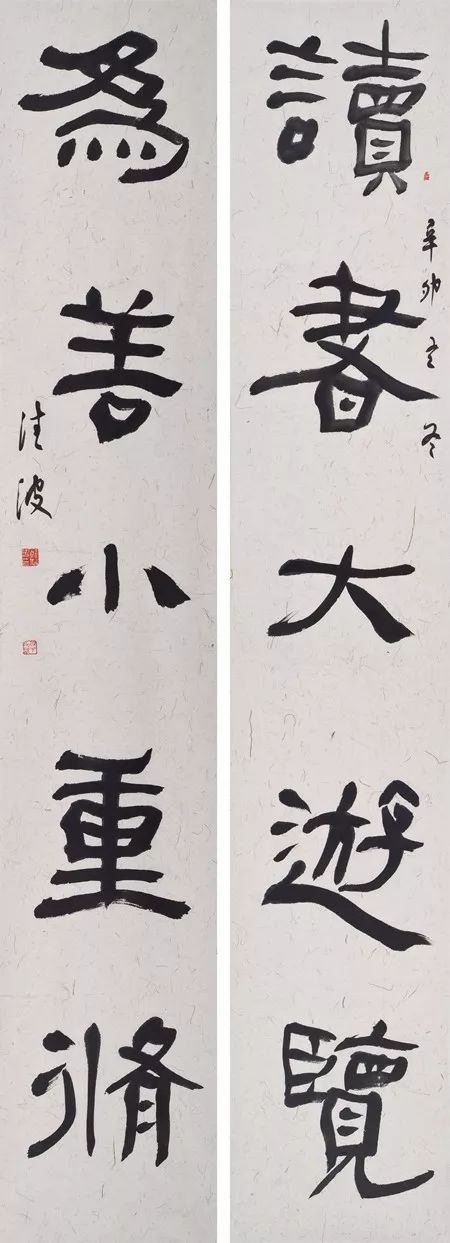 讀書大遊覽
辛卯之冬
為善小重脩
波